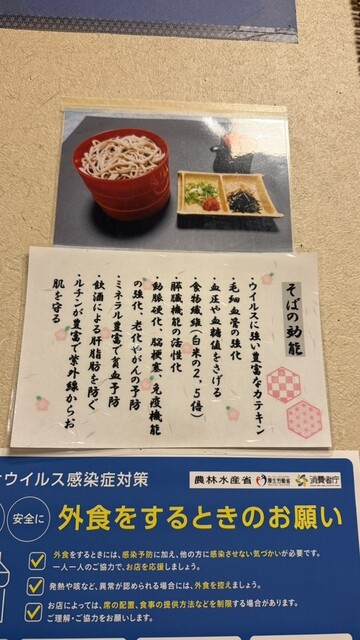 そばの効能
・ウイルスに強い豊富なカテキン
・毛細血管の強化
・血圧や血糖値をさげる
・食物繊維(白米の2,5倍)
・肝臓機能の活性化
・動脈硬化、脳梗塞、免疫機能
の強化、老化やがんの予防
・ミネラル豊富で貧血予防
・飲酒による肝脂肪を防ぐ
・ルチンが豊富で紫外線からお
肌を守る
ウイルス感染症対策
農林水産省 厚生労働省 消費者庁
安全に
外食をするときのお願い
外食をするときには、感染予防に加え、他の方に感染させない気づかいが必要です。
一人一人のご協力で、お店を応援しましょう。
発熱や咳など、異常が認められる場合には、外食を控えましょう。
お店によっては、席の配置、食事の提供方法などを制限する場合があります。
ご理解・ご協力をお願いします。